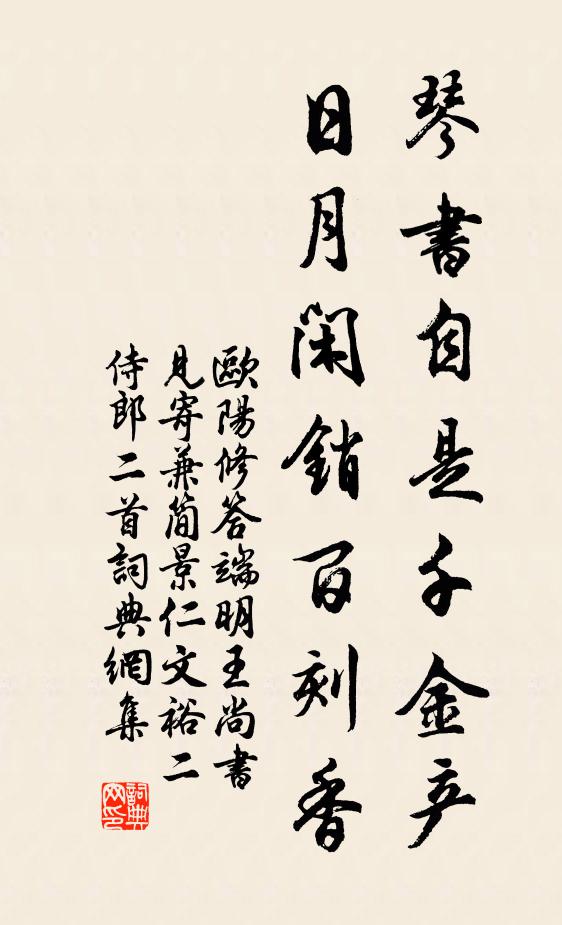 琴書自是千金产
日月閑銷百刻香
歐陽修答端明王尚書
見寄兼简景仁文裕二
侍郎二首詞典網集
詞典
网印